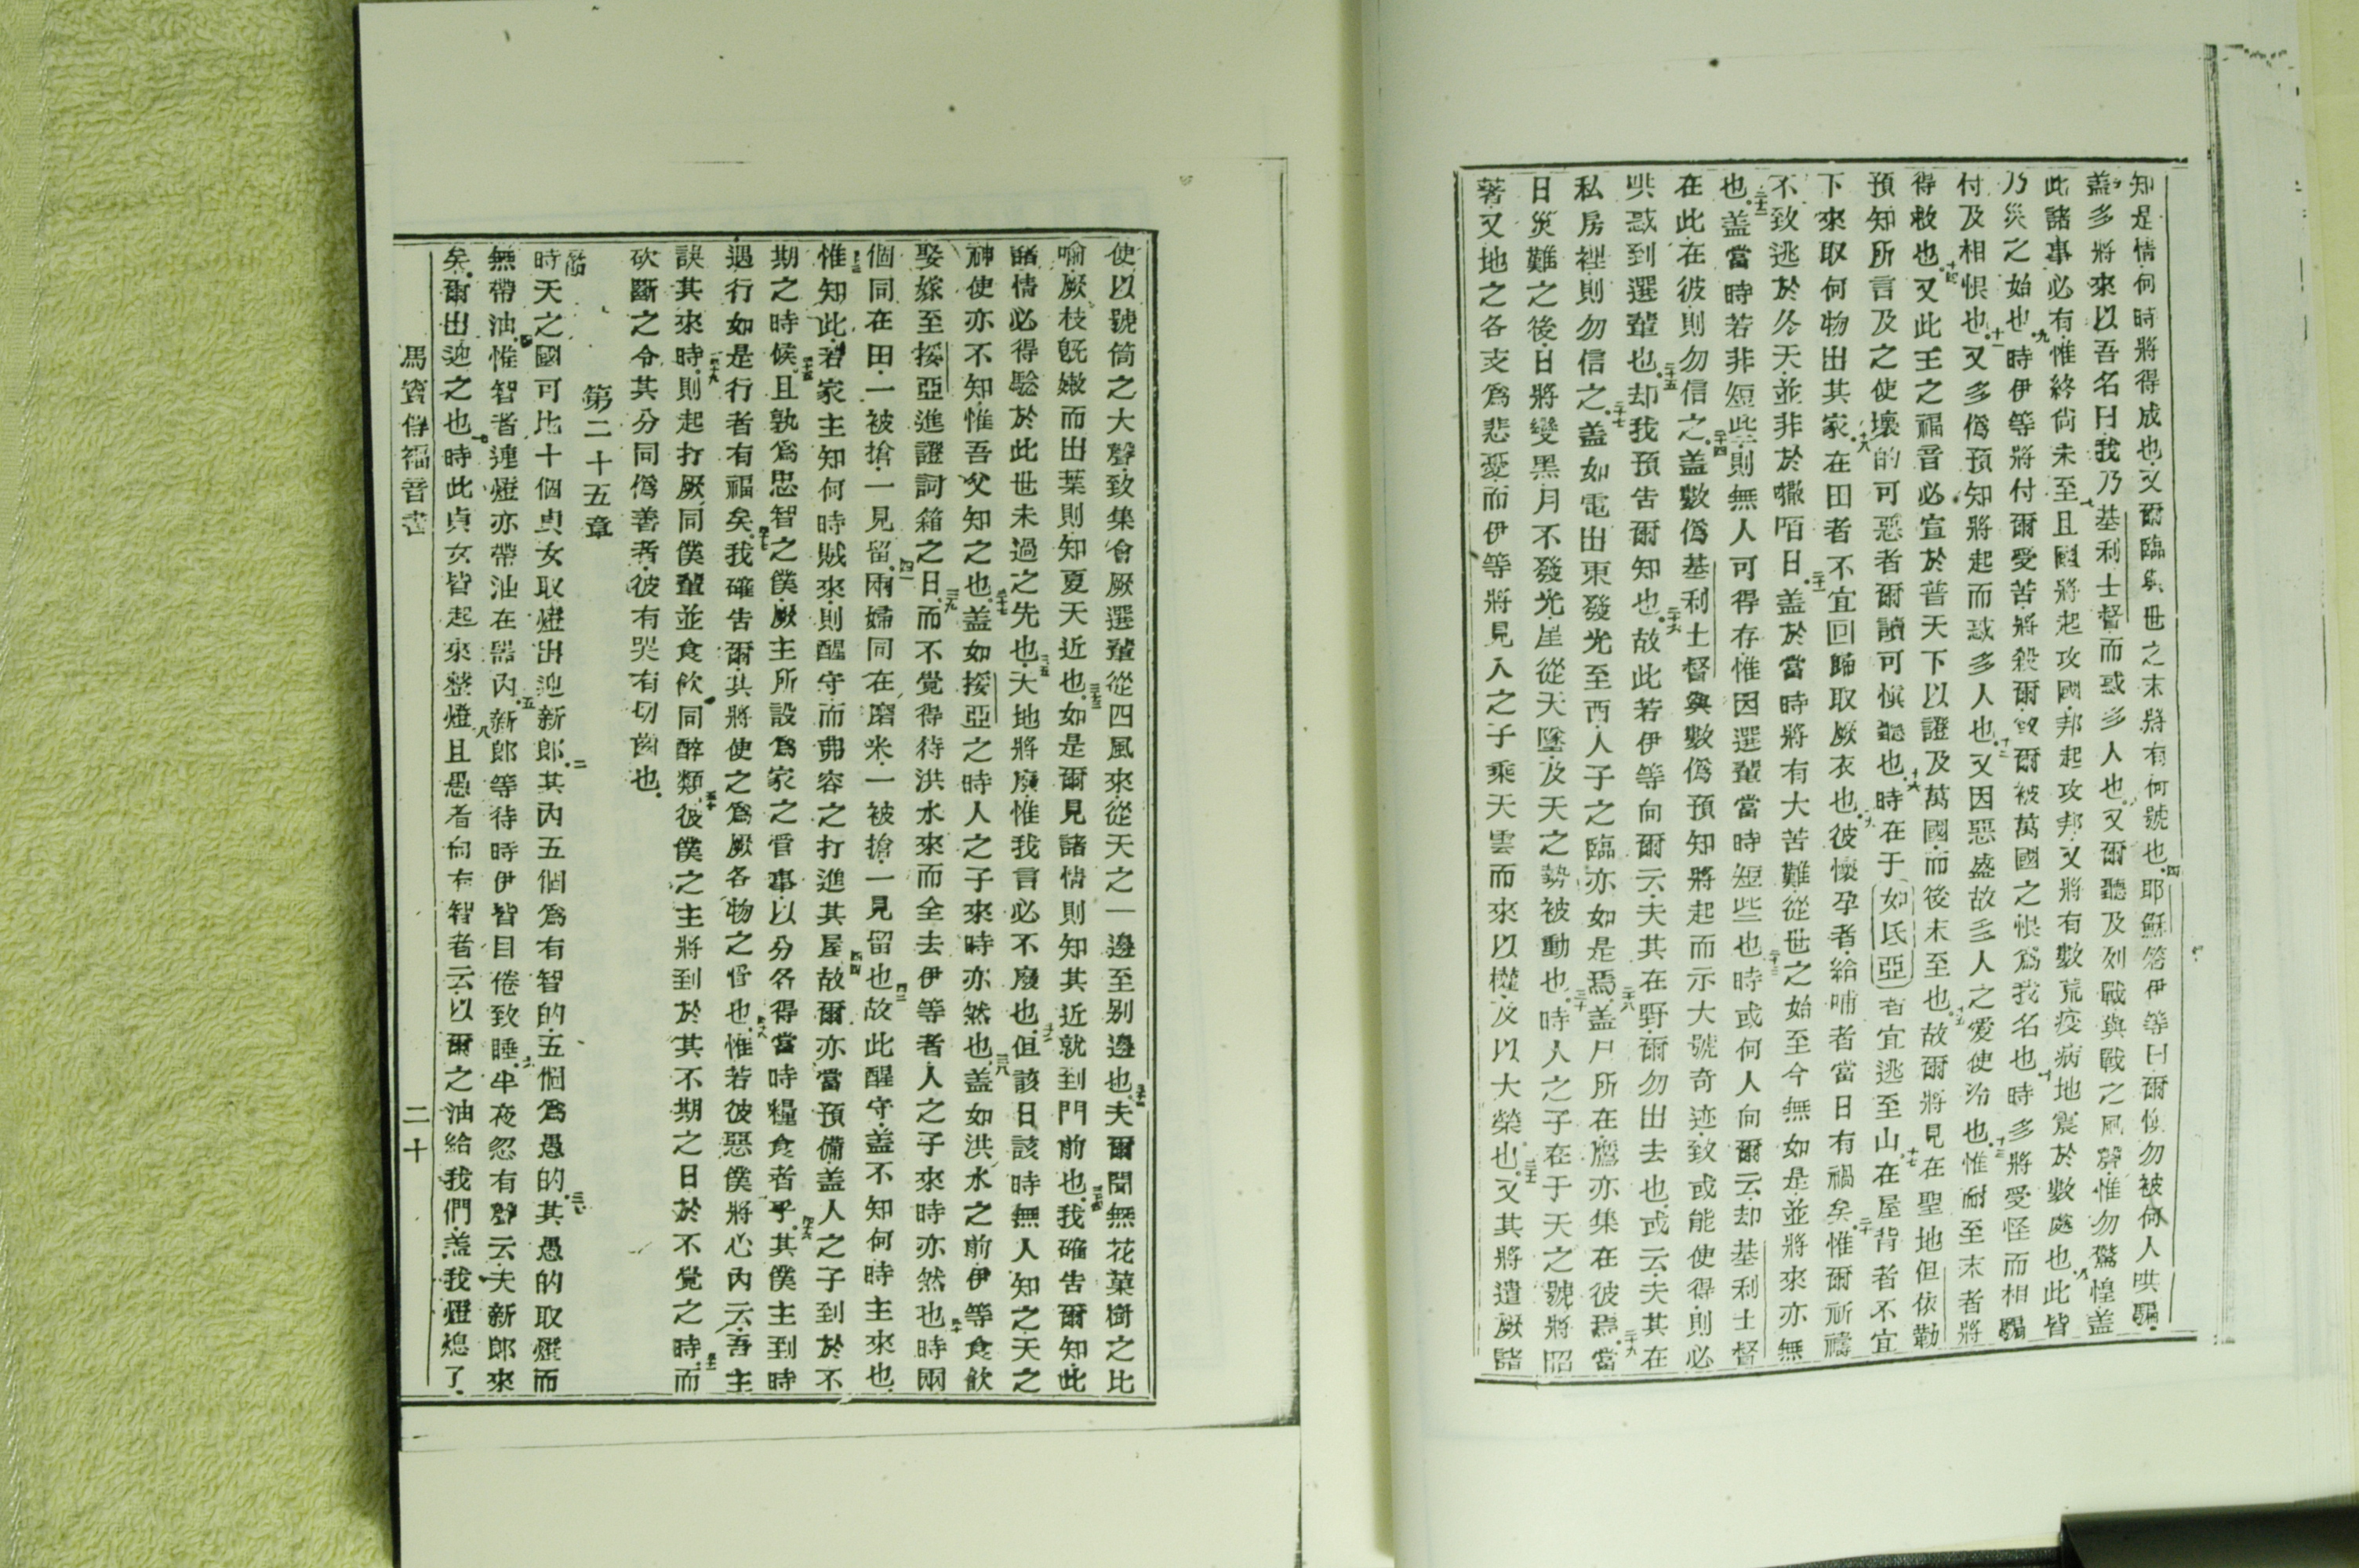 知是情何時將得成也又爾臨與世之末將有何號也四耶穌答伊等曰爾慎勿被何人哄騙
蓋多將來以吾名曰我乃基利士督而惑多人也又爾聽及列戰與戰之風聲惟勿驚惶蓋
此諸事必有惟終尚未至七且國將起攻國邦起攻邦又將有數荒疫病地震於數處也八此皆
乃災之始也九時伊等將付爾受苦將殺爾爾被萬國之恨爲我名也十時多將受怪而相騙
付及相恨也十一又多僞預知將起而惑多人也十二又因惡盛故多人之愛使冷也十三惟耐至末者將
得救也十四又此王之福音必宣於普天下以證及萬國而後末至也十五故爾將見在聖地但依勒
預知所言及之使壞的可惡者爾讀可愼聽也十六時在于如氏亞者宜逃至山十七在屋背者不宜
下來取何物出其家十八在田者不宜回歸取厥衣也十九彼懷孕者給哺者當日有禍矣二十惟爾祈禱
不致逃於冬天並非於㗭咟日二十一蓋於當時將有大苦難從世之始至今無如是並將來亦無
也二十二蓋當時若非短些則無人可得存惟因選輩當時短些也二十三時或何人向爾云却基利士督
在此在彼則勿信之二十四蓋數僞基利士督與數僞預知將起而示大號奇迹致或能使得則必
哄惑到選輩也二十五却我預告爾知也二十六故此若伊等向爾云夫其在野爾勿出去也或云夫其在
私房裡則勿信之二十七蓋如電出東發光至西人子之臨亦如是焉二十八蓋尸所在鷹亦集在彼焉二十九當
日災難之後日將變黑月不發光星從天墜及天之勢被動也三十時人之子在于天之號將昭
著又地之各支爲悲憂而伊等將見人之子乘天雲而來以權及以大榮也三十一又其將遣厥諸
使以號筒之大聲致集會厥選輩從四風來從天之一邊至别邊也三十二夫爾聞無花菓樹之比
喻厥枝旣嫩而出葉則知夏天近也三十三如是爾見諸情則知其近就到門前也三十四我確告爾知此
諸情必得驗於此世未過之先也三十五天地將廢惟我言必不廢也三十六但該日該時無人知之天之
神使亦不知惟吾父知之也三十七蓋如挼亞之時人之子來時亦然也三十八蓋如洪水之前伊等食飲
娶嫁至挼亞進證詞箱之日三十九而不覺得待洪水來而全去伊等者人之子來時亦然也四十時兩
個同在田一被搶一見留四一兩婦同在磨米一被搶一見留也四二故此醒守蓋不知何時主來也
惟知此若家主知何時賊來則醒守而弗容之打進其屋四四故爾亦當預備蓋人之子到於不
期之時候四十五且孰爲忠智之僕厥主所設爲家之管事以分各得當時糧食者乎四十六其僕主到時
遇行如是行者有福矣四十七我確告爾其將使之爲厥各物之管也四十八惟若彼惡僕將心內云吾主
誤其來時四十九則起打厥同僕輩並食飲同醉類五十彼僕之主將到於其不期之日於不覺之時五十一而
砍斷之令其分同僞善者彼有哭有切齒也
第二十五章
時天之國可比十個貞女取燈出迎新郎二其內五個爲有智的五個爲愚的三其愚的取燈而
無帶油四惟智者連燈亦帶油在器內五新郎等待時伊皆目倦致睡六半夜忽有聲云夫新郎來
矣爾出迎之也七時此貞女皆起來整燈八且愚者向有智者云以爾之油給我們蓋我燈熄了
馬竇傳福音書 二十